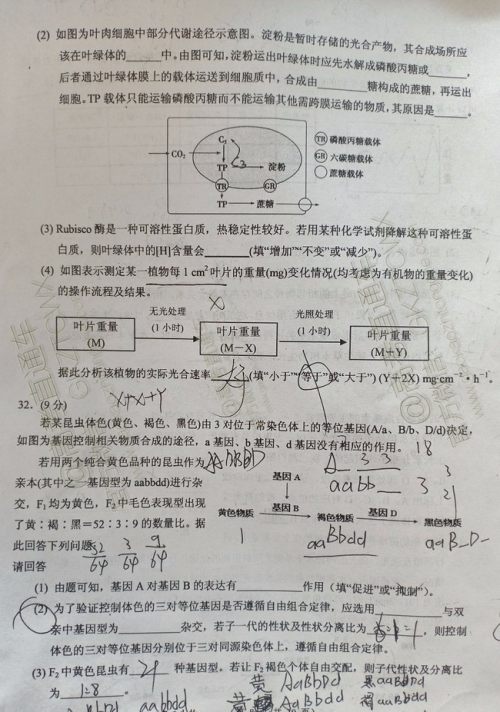 (2) 如图为叶肉细胞中部分代谢途径示意图。淀粉是暂时存储的光合产物，其合成场所应
该在叶绿体的______中。由图可知,淀粉运出叶绿体时应先水解成磷酸丙糖或______,
后者通过叶绿体膜上的载体运送到细胞质中，合成由______糖构成的蔗糖，再运出
细胞。TP 载体只能运输磷酸丙糖而不能运输其他需跨膜运输的物质,其原因是______。
CO₂
C₃
TP
淀粉
TR
GR
TP
蔗糖
TR 磷酸丙糖载体
GR 六碳糖载体
蔗糖载体
(3) Rubisco 酶是一种可溶性蛋白质，热稳定性较好。若用某种化学试剂降解这种可溶性蛋
白质，则叶绿体中的[H]含量会______(填“增加”“不变”或“减少”)。
(4) 如图表示测定某一植物每 1 cm² 叶片的重量(mg)变化情况(均考虑为有机物的重量变化)
的操作流程及结果。
X
叶片重量
(M)
无光处理
(1 小时)
叶片重量
(M－X)
光照处理
(1 小时)
叶片重量
(M＋Y)
据此分析该植物的实际光合速率______(填“小于”“等于”或“大于”) (Y＋2X) mg·cm⁻²·h⁻¹。
X+X+Y
32. (9 分)
若某昆虫体色(黄色、褐色、黑色)由 3 对位于常染色体上的等位基因(A/a、B/b、D/d)决定,
如图为基因控制相关物质合成的途径，a 基因、b 基因、d 基因没有相应的作用。 18
若用两个纯合黄色品种的昆虫作为
亲本(其中之一基因型为 aabbdd)进行杂
交，F₁ 均为黄色，F₂ 中毛色表现型出现
了黄：褐：黑＝52：3：9 的数量比。据
此回答下列问题
请回答
52/64 3/64 9/64
A_ 3 3
aabb__ 3
基因 A
黄色物质
基因 B
褐色物质
基因 D
黑色物质
aaBbdd
aaB_D-
(1) 由题可知，基因 A 对基因 B 的表达有______作用（填“促进”或“抑制”）。
(2) 为了验证控制体色的三对等位基因是否遵循自由组合定律，应选用______与双
亲中基因型为______杂交，若子一代的性状及性状分离比为______，则控制
体色的三对等位基因分别位于三对同源染色体上，遵循自由组合定律。
(3) F₂ 中黄色昆虫有 21 种基因型，若让 F₂ 褐色个体自由交配，则子代性状及分离比
为 1:8 。
黄 AaBbDd 黑 aaBbDd
AaBbdd 褐 aaBbdd
aabbdd